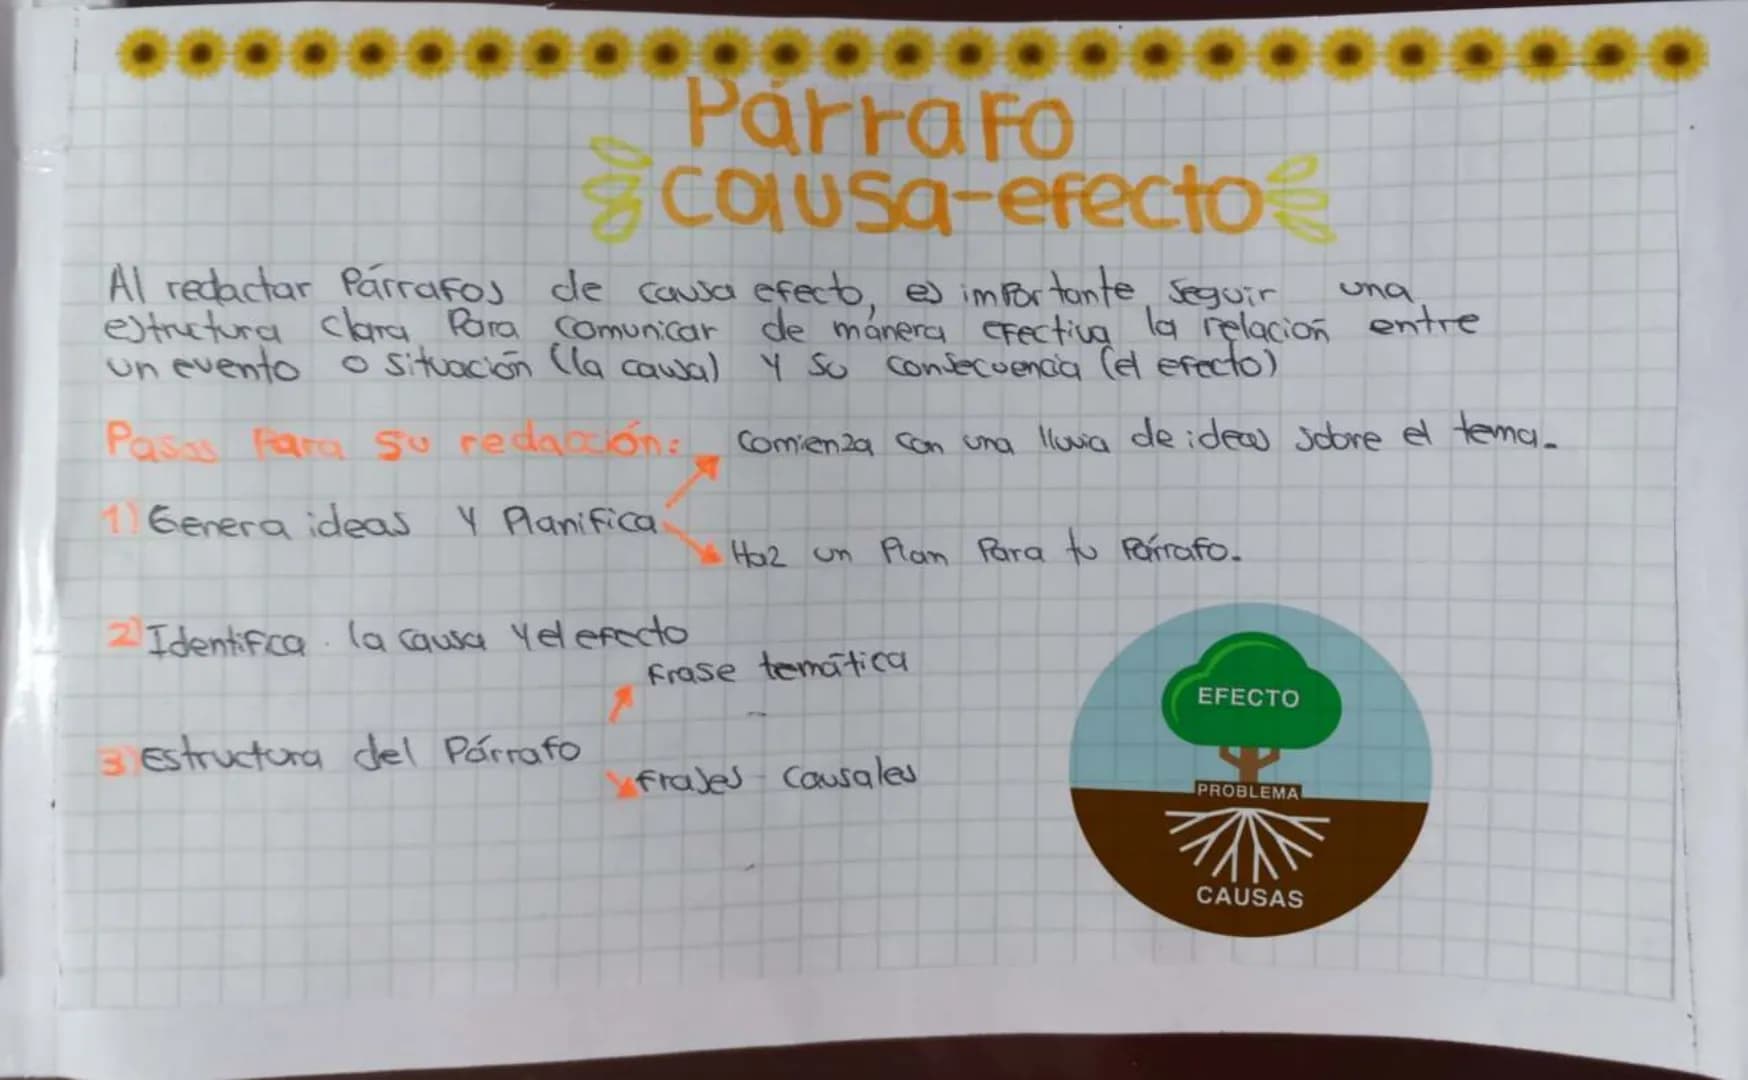 Párrafo
causa-efecto
Al redactar Párrafos de causa efecto, es importante seguir una
estructura clara Para comunicar de manera efectiva la relación entre
un evento o situación (la causa) y su consecuencia (el efecto)
Pasos Para su redacción:
Comienza con una lluvia de ideas sobre el tema.
1) Genera ideas y Planifica
Haz un Plan Para tu Párrafo.
2) Identifica la causa y el efecto
Frase temática
3) Estructura del Párrafo
frases causales
EFECTO
PROBLEMA
CAUSAS